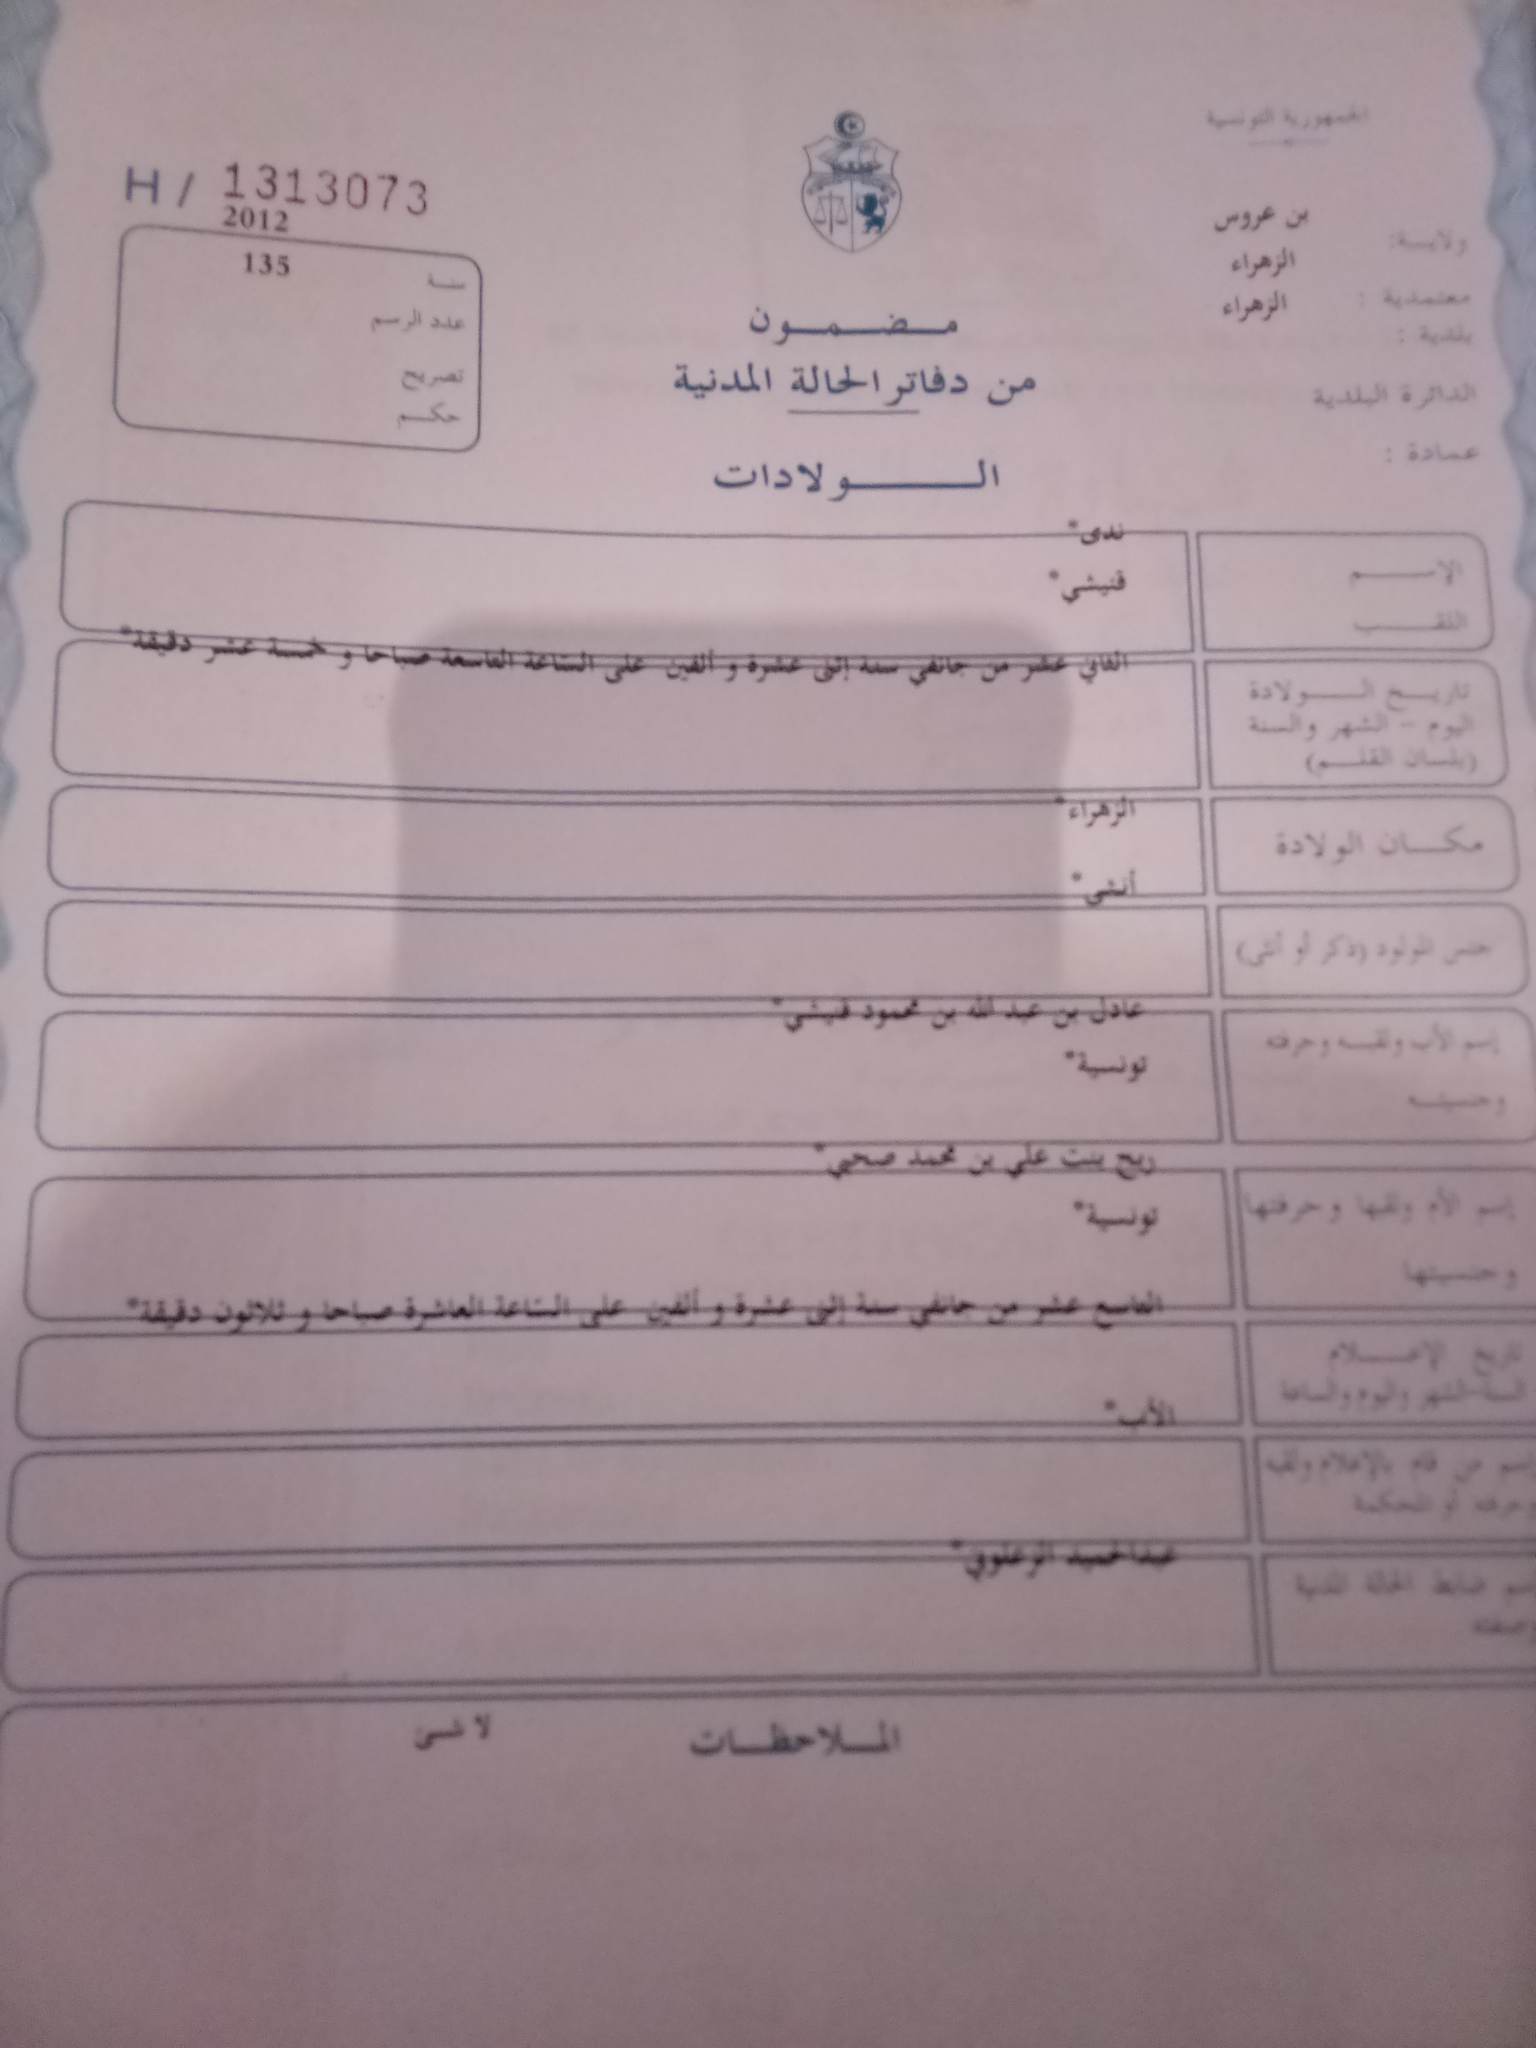 الجمهورية التونسية
H / 1313073
ولاية: بن عروس
معتمدية : الزهراء
بلدية : الزهراء
الدائرة البلدية
عمادة :
2012
سنة 135
عدد الرسم
تصريح
حكم
مضمون
من دفاتر الحالة المدنية
الولادات
ندى*
الإسم
قنيشي*
اللقب
الثاني عشر من جانفي سنة إثنى عشرة و ألفين على الساعة التاسعة صباحا و خمسة عشر دقيقة*
تاريخ الولادة
اليوم - الشهر والسنة
(بلسان القلم)
الزهراء*
مكان الولادة
أنثى*
جنس المولود (ذكر أو أنثى)
عادل بن عبد الله بن محمود قنيشي*
إسم الأب ولقبه وحرفته
تونسية*
وجنسيته
ريح بنت علي بن محمد صحبي*
إسم الأم ولقبها وحرفتها
تونسية*
وجنسيتها
التاسع عشر من جانفي سنة إثنى عشرة و ألفين على الساعة العاشرة صباحا و ثلاثون دقيقة*
تاريخ الإعلام
السنة-الشهر واليوم والساعة
الأب*
إسم من قام بالإعلام ولقبه
وحرفته أو المحكمة
عبدالحميد الزغلوني*
إسم ضابط الحالة المدنية
وصفته
الملاحظات لا شئ